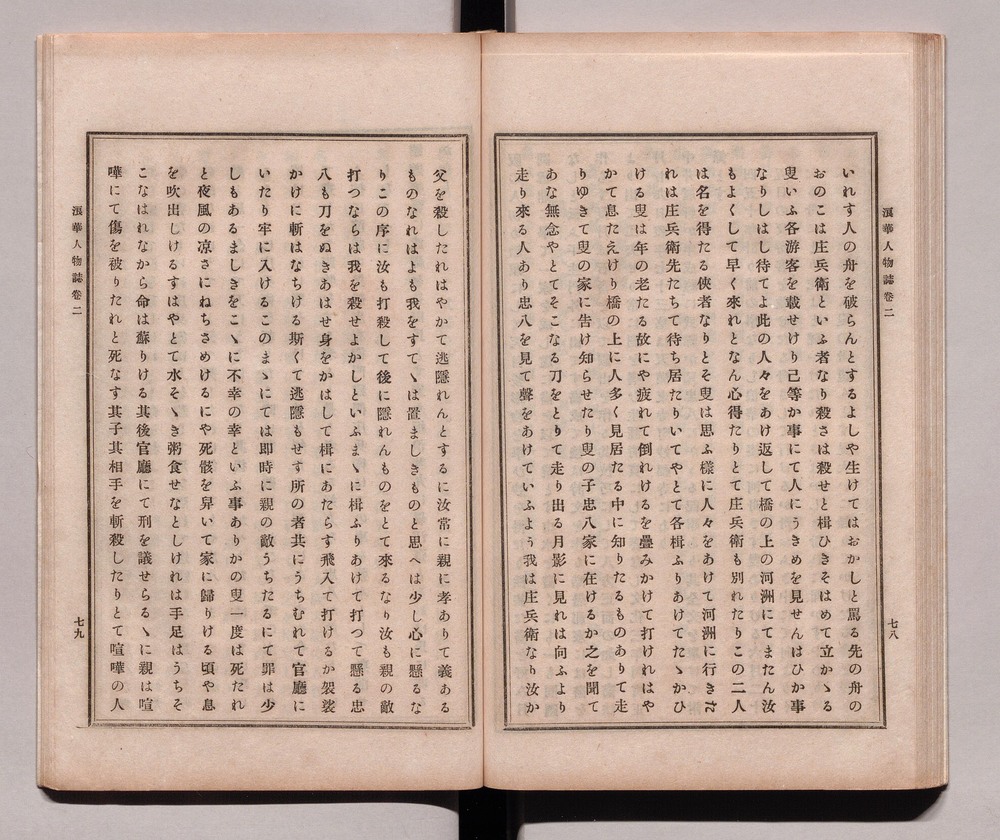 浪華人物誌卷二
七八
いれす人の舟を破らんとするよしや生けてはおかしと罵る先の舟の
おのこは庄兵衛といふ者なり殺さは殺せと楫ひきそはめて立かゝる
叟いふ各游客を載せけり己等か事にて人にうきめを見せんはひか事
なりしはし待てよ此の人々をあけ返して橋の上の河洲にてまたん汝
もよくして早く來れとなん心得たりとて庄兵衛も別れたりこの二人
は名を得たる俠者なりとそ叟は思ふ樣に人々をあけて河洲に行きた
れは庄兵衛先たちて待ち居たりいてやとて各楫ふりあけてたゝかひ
ける叟は年の老たる故にや疲れて倒れけるを疊みかけて打けれはや
かて息たえけり橋の上に人多く見居たる中に知りたるものありて走
りゆきて叟の家に告け知らせたり叟の子忠八家に在けるか之を聞て
あな無念やとてそこなる刀をとりて走り出る月影に見れは向ふより
走り來る人あり忠八を見て聲をあけていふよう我は庄兵衛なり汝か
父を殺したれはやかて逃隱れんとするに汝常に親に孝ありて義ある
ものなれはよも我をすてゝは置ましきものと思へは少し心に懸るな
りこの序に汝も打殺して後に隱れんものをとて來るなり汝も親の敵
打つならは我を殺せよかしといふまゝに楫ふりあけて打つて懸る忠
八も刀をぬきあはせ身をかはして楫にあたらす飛入て打けるか袈裟
かけに斬はなちける斯くて逃隱もせす所の者共にうちむれて官廳に
いたり牢に入けるこのまゝにては即時に親の敵うちたるにて罪は少
しもあるましきをこゝに不幸の幸といふ事ありかの叟一度は死たれ
と夜風の凉さにねちさめけるにや死骸を舁いて家に歸りける頃や息
を吹出しけるすはやとて水そゝき粥食せなとしけれは手足はうちそ
こなはれなから命は蘇りける其後官廳にて刑を議せらるゝに親は喧
嘩にて傷を被りたれと死なす其子其相手を斬殺したりとて喧嘩の人
浪華人物誌卷二
七九